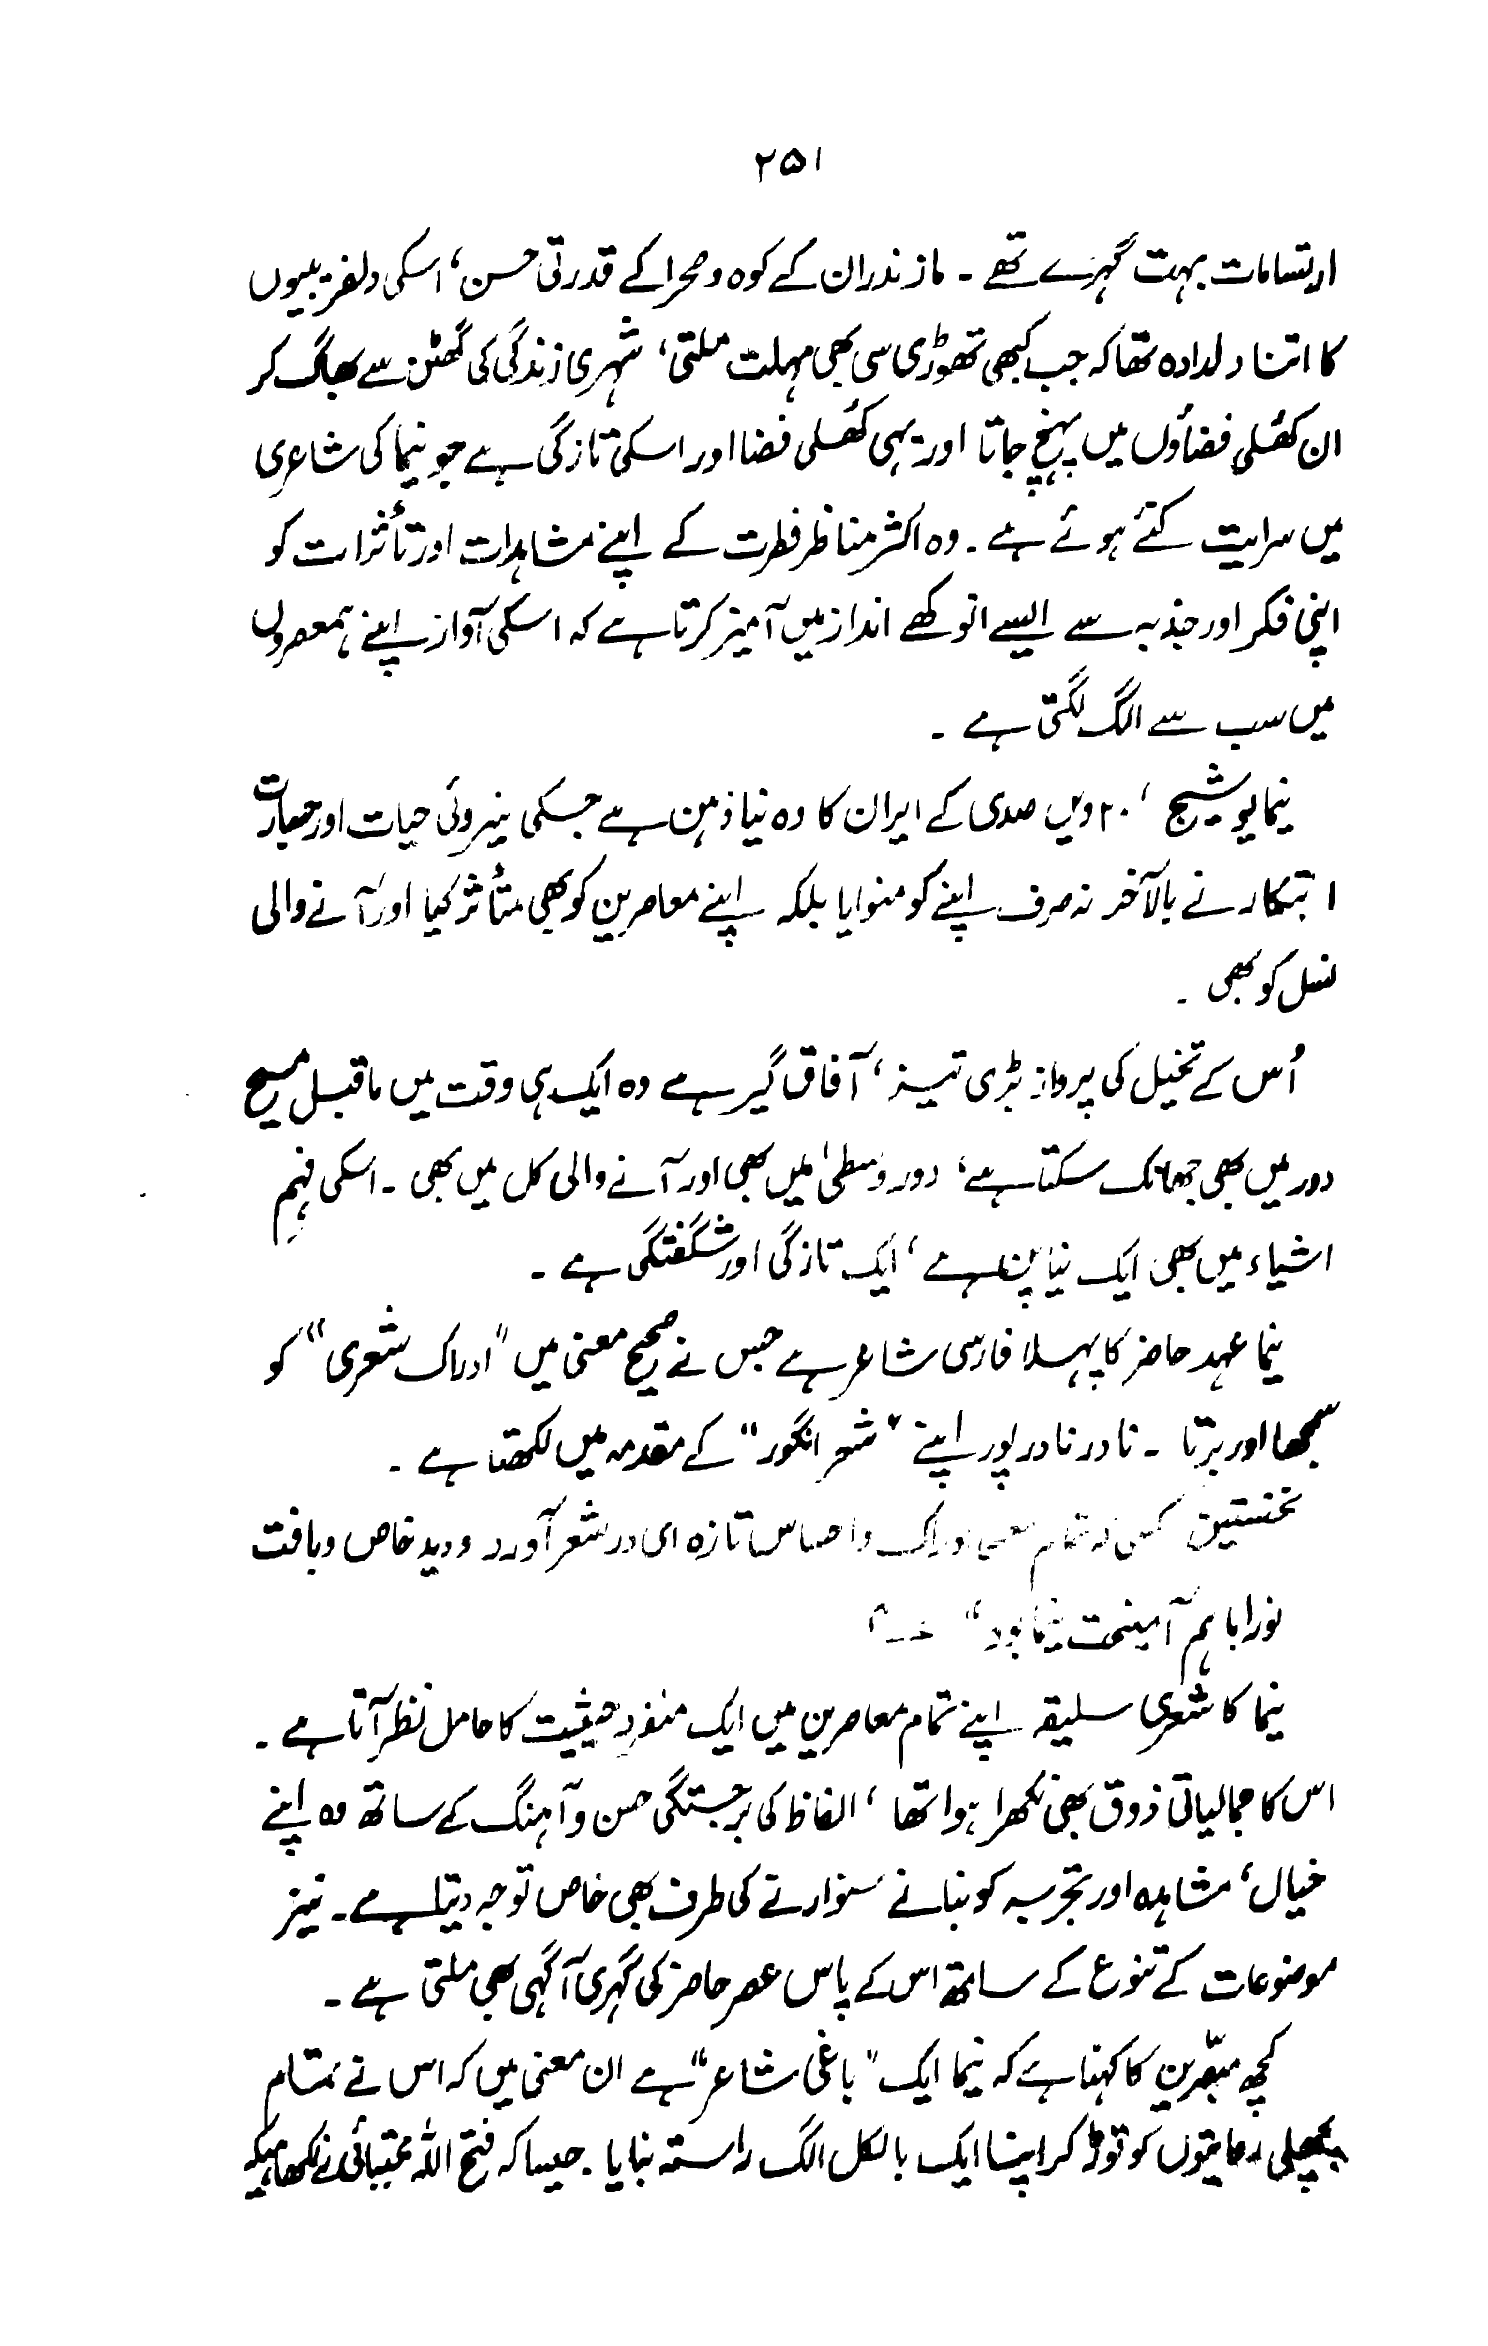 ۲۵۱
ارتسامات بہت گہرے تھے ۔ مازندران کے کوہ و صحرا کے قدرتی حسن، اسکی دلفریبیوں
کا اتنا دلدادہ تھا کہ جب کبھی تھوڑی سی بھی مہلت ملتی، شہری زندگی کی گھٹن سے بھاگ کر
ان کھُلی فضاؤں میں پہنچ جاتا اور یہی کھُلی فضا اور اسکی تازگی ہے جو نیما کی شاعری
میں سرایت کئے ہوئے ہے ۔ وہ اکثر مناظر فطرت کے اپنے مشاہدات اور تأثرات کو
اپنی فکر اور جذبہ سے ایسے انوکھے انداز میں آمیز کرتا ہے کہ اسکی آواز اپنے ہمعصروں
میں سب سے الگ لگتی ہے ۔
نیما یوشیج، ۲۰ ویں صدی کے ایران کا وہ نیا ذہن ہے جسکی نیروئی حیات اور جہارت
ابتکار نے بالآخر نہ صرف اپنے کو منوایا بلکہ اپنے معاصرین کو بھی متأثر کیا اور آنے والی
نسل کو بھی ۔
اُس کے تخیل کی پرواز بڑی تیز، آفاق گیر ہے وہ ایک ہی وقت میں ماقبل مسیح
دور میں بھی جھانک سکتا ہے، دور وُسطیٰ میں بھی اور آنے والی کل میں بھی ۔ اسکی فہم
اشیاء میں بھی ایک نیا پن ہے، ایک تازگی اور شگفتگی ہے ۔
نیما عہد حاضر کا پہلا فارسی شاعر ہے جس نے صحیح معنی میں "ادراک شعری" کو
سمجھا اور برتا ۔ نادر نادر پور اپنے "شعر انگور" کے مقدمہ میں لکھتا ہے ۔
نخستین کسی کہ تمام معنی ادراک و احساس تازہ ای در شعر آورد و دید خاص و بافت
نو را باہم آمیخت نیما بود"
نیما کا شعری سلیقہ اپنے تمام معاصرین میں ایک منفرد حیثیت کا حامل نظر آتا ہے ۔
اس کا جمالیاتی ذوق بھی نکھرا ہوا تھا، الفاظ کی برجستگی حسن و آہنگ کے ساتھ وہ اپنے
خیال، مشاہدہ اور تجربہ کو بنانے سنوارنے کی طرف بھی خاص توجہ دیتا ہے ۔ نیز
موضوعات کے تنوع کے ساتھ اس کے پاس عصر حاضر کی گہری آگہی بھی ملتی ہے ۔
کچھ مبصّرین کا کہنا ہے کہ نیما ایک "باغی شاعر" ہے ان معنی میں کہ اس نے تمام
پچھلی روایتوں کو توڑ کر اپنا ایک بالکل الگ راستہ بنایا ۔ جیسا کہ فتح اللہ مجتبائی نے لکھا ہیکہ